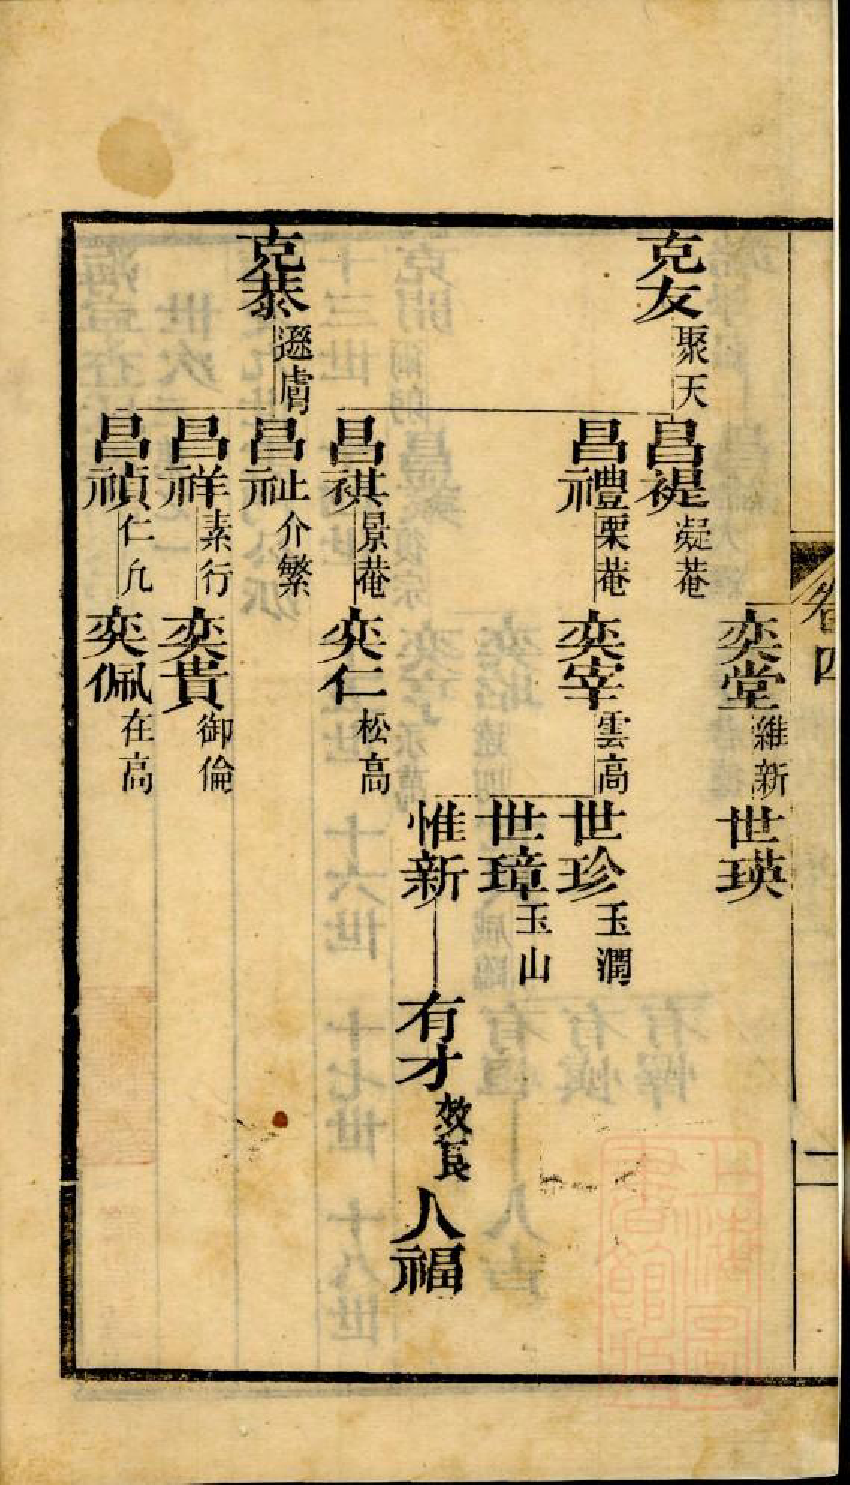 卷四
二
奕堂 維新 世瑛
克友 聚天 昌禔 凝菴
昌禮 栗菴 奕宰 雲高 世珍 玉潤
世璋 玉山
惟新 有才 效良 人福
昌祺 景菴 奕仁 松高
克恭 遜膚 昌祉 介繁
昌祥 素行 奕貴 御倫
昌禎 仁允 奕佩 在高